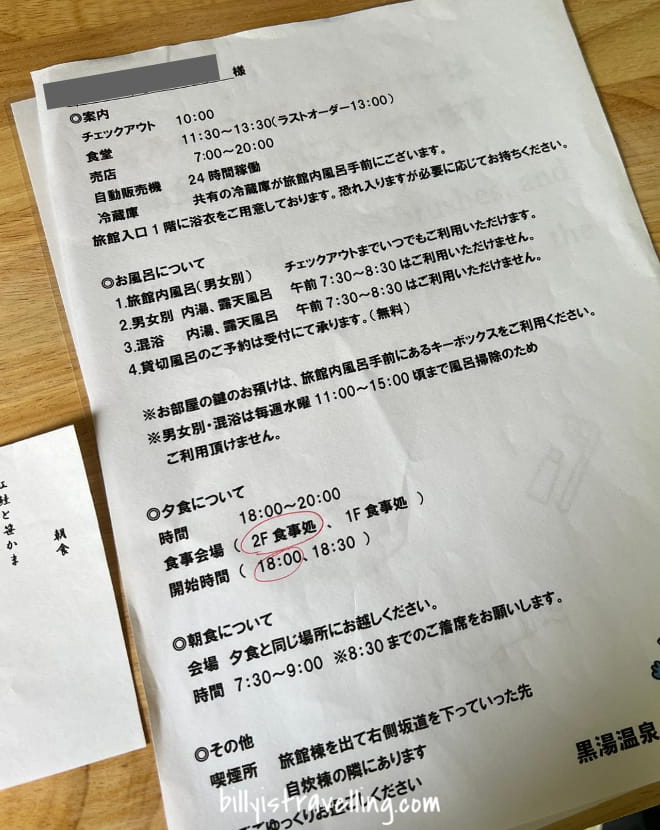 様
◎案内
チェックアウト 10:00
食堂 11:30～13:30(ラストオーダー13:00)
売店 7:00～20:00
自動販売機 24時間稼働
冷蔵庫 共有の冷蔵庫が旅館内風呂手前にございます。
旅館入口1階に浴衣をご用意しております。恐れ入りますが必要に応じてお持ちください。
◎お風呂について
1.旅館内風呂(男女別) チェックアウトまでいつでもご利用いただけます。
2.男女別 内湯、露天風呂 午前7:30～8:30はご利用いただけません。
3.混浴 内湯、露天風呂 午前7:30～8:30はご利用いただけません。
4.貸切風呂のご予約は受付にて承ります。(無料)
※お部屋の鍵のお預けは、旅館内風呂手前にあるキーボックスをご利用ください。
※男女別・混浴は毎週水曜11:00～15:00頃まで風呂掃除のため
ご利用頂けません。
◎夕食について
時間 18:00～20:00
食事会場 ( 2F食事処 、 1F食事処 )
開始時間 ( 18:00、18:30 )
◎朝食について
会場 夕食と同じ場所にお越しください。
時間 7:30～9:00 ※8:30までのご着席をお願いします。
◎その他
喫煙所 旅館棟を出て右側坂道を下っていった先
自炊棟の隣にあります
ごゆっくりお過ごしください
黒湯温泉
朝食
鮭と笹かま
billyistravelling.com